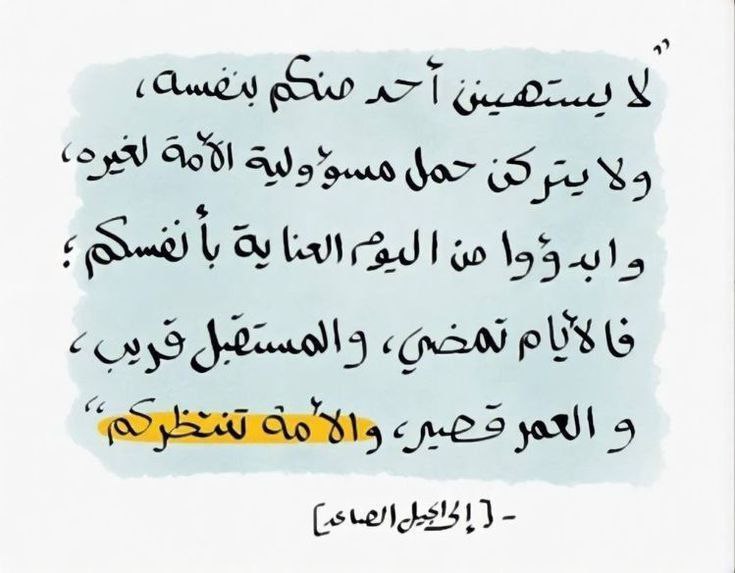 ”لا يستهينن أحد منكم بنفسه،
ولا يتركن حمل مسؤولية الأمة لغيره،
وابدؤوا من اليوم العناية بأنفسكم؛
فالأيام تمضي، والمستقبل قريب،
والعمر قصير، والأمة تنتظركم“
- [إلى الجيل الصاعد]